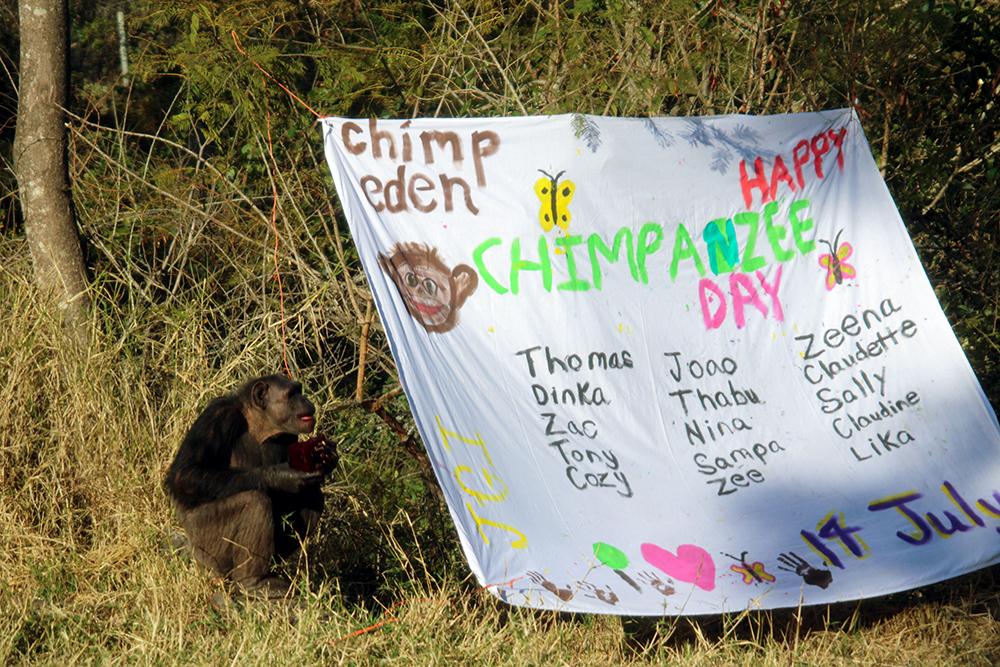 chimp
eden
HAPPY
CHIMPANZEE
DAY
Thomas
Dinka
Zac
Tony
Cozy
Joao
Thabu
Nina
Sampa
Zee
Zeena
Claudette
Sally
Claudine
Lika
JGI
14 July